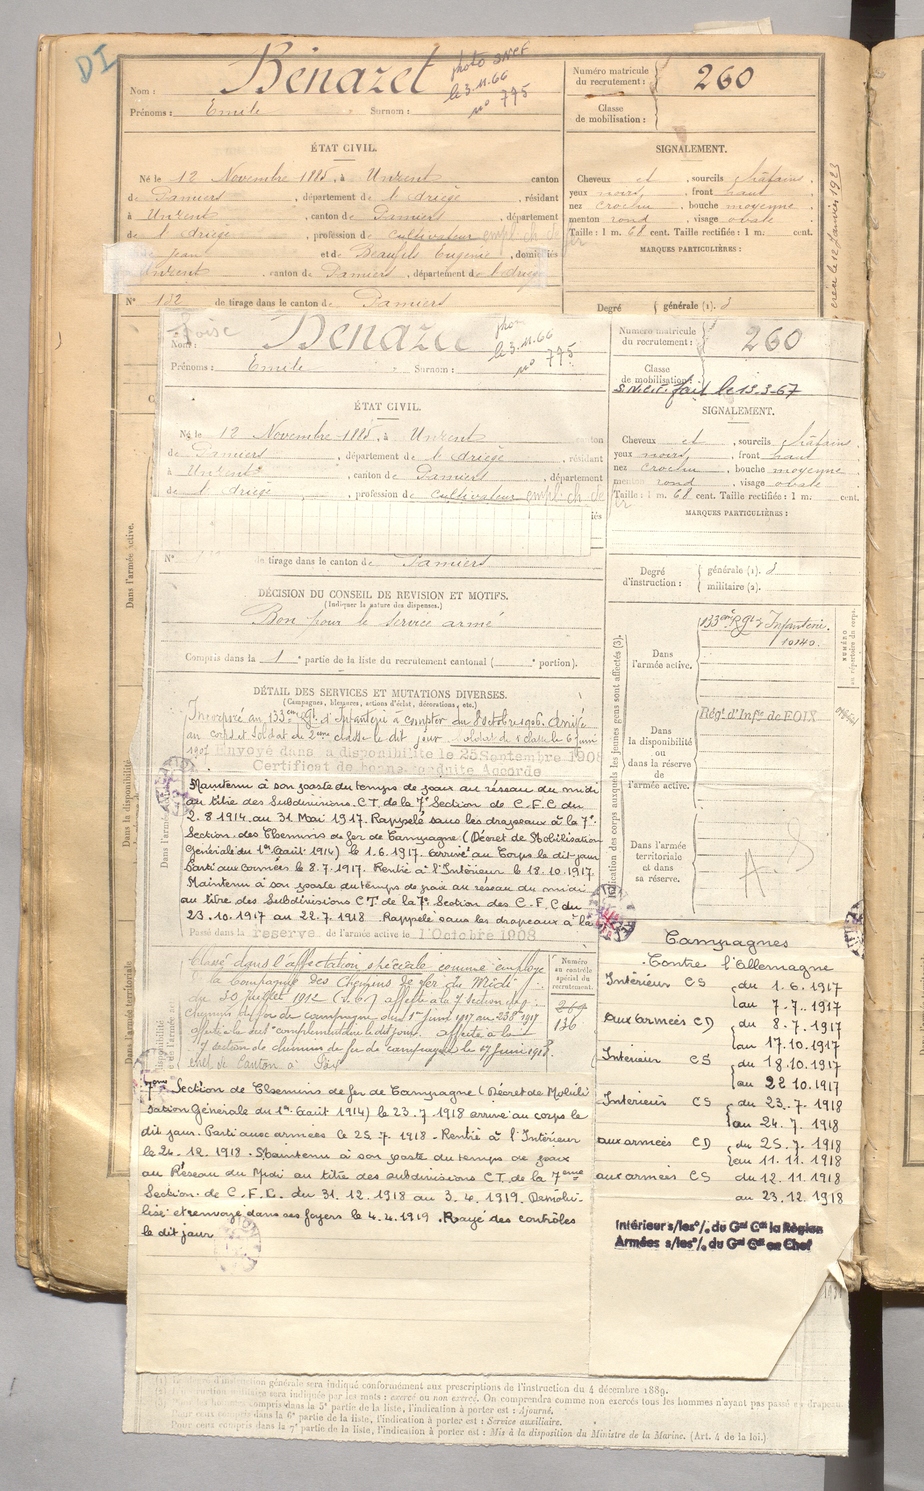 DI
Nom : Bénazet
photo SNCF
le 3.11.66
n° 775
Prénoms : Emile Surnom :
Numéro matricule du recrutement : 260
Classe de mobilisation :
ÉTAT CIVIL.
Né le 12 Novembre 1885, à Unzent canton
de Pamiers, département de l'Ariège, résidant
à Unzent, canton de Pamiers, département
de l'Ariège, profession de cultivateur empl. ch. de fer
Jean et de Beaufils Eugénie, domiciliés
Unzent, canton de Pamiers, département de l'Ariège
N° 132 de tirage dans le canton de Pamiers
SIGNALEMENT.
Cheveux et, sourcils châtains,
yeux noirs, front haut
nez crochu, bouche moyenne
menton rond, visage ovale
Taille : 1 m. 68 cent. Taille rectifiée : 1 m. cent.
MARQUES PARTICULIÈRES :
Degré générale (1). 3
Nom : Bénazet
le 3.11.66
n° 775
Prénoms : Emile Surnom :
Numéro matricule du recrutement : 260
Classe de mobilisation :
S.N.C.F. fait le 13-3-67
ÉTAT CIVIL.
Né le 12 Novembre 1885, à Unzent canton
de Pamiers, département de l'Ariège, résidant
à Unzent, canton de Pamiers, département
de l'Ariège, profession de cultivateur empl. ch. de fer
N° de tirage dans le canton de Pamiers
SIGNALEMENT.
Cheveux et, sourcils châtains,
yeux noirs, front haut
nez crochu, bouche moyenne
menton rond, visage ovale
Taille : 1 m. 68 cent. Taille rectifiée : 1 m. cent.
MARQUES PARTICULIÈRES :
Degré d'instruction : générale (1). 3
militaire (2).
DÉCISION DU CONSEIL DE REVISION ET MOTIFS.
(Indiquer la nature des dispenses.)
Bon pour le service armé
Compris dans la 1e partie de la liste du recrutement cantonal ( e portion).
DÉTAIL DES SERVICES ET MUTATIONS DIVERSES.
(Campagnes, blessures, actions d'éclat, décorations, etc.)
Incorporé au 133ème Rgt d'Infanterie à compter du 8 Octobre 1906. Arrivé
au corps et soldat de 2ème classe le dit jour. Soldat de 1e classe le 6 juin
Envoyé dans la disponibilité le 25 Septembre 1908
Certificat de bonne conduite Accordé
Maintenu à son poste du temps de paix au réseau du midi
au titre des Subdivisions C.T. de la 7e Section de C.F.C du
2.8.1914 au 31 Mai 1917. Rappelé sous les drapeaux à la 7e
Section des Chemins de fer de Campagne (Décret de Mobilisation
Générale du 1er Août 1914) le 1.6.1917. arrivé au Corps le dit jour
Parti aux armées le 8.7.1917. Rentré à l'Intérieur le 18.10.1917.
Maintenu à son poste du temps de paix au réseau du midi
au titre des Subdivisions CT de la 7e Section des C.F.C du
23.10.1917 au 22.7.1918 Rappelé sous les drapeaux à la
Passé dans la réserve de l'armée active le 1 Octobre 1908
Classé dans l'affectation spéciale comme employé
la Compagnie des Chemins de fer du Midi
du 30 Juillet 1912 affecté à la 7 Section de
chemins de fer de campagne du 1er Juin 1917 au
7 section de chemins de fer de campagne le 17 Juin 1918.
chef de Canton à Foix
Numéro au contrôle spécial du recrutement.
136
7ème Section de Chemins de fer de Campagne (Décret de Mobili
sation Générale du 1er Août 1914) le 23.7.1918 arrivé au corps le
dit jour. Parti aux armées le 25.7.1918. Rentré à l'Intérieur
le 24.12.1918. Maintenu à son poste du temps de paix
au Réseau du Midi au titre des subdivisions CT. de la 7ème
Section de C.F.C. du 31.12.1918 au 3.4.1919. Démobi
lisé et renvoyé dans ses foyers le 4.4.1919. Rayé des contrôles
le dit jour
Indication des corps auxquels les jeunes gens sont affectés (3).
Dans l'armée active. 133ème Rgt d'Infanterie.
10140.
Dans la disponibilité ou dans la réserve de l'armée active. Régt d'Infie de FOIX
Dans l'armée territoriale et dans sa réserve.
Campagnes
Contre l'Allemagne
Intérieur CS du 1.6.1917
au 7.7.1917
aux armées CD du 8.7.1917
au 17.10.1917
Intérieur CS du 18.10.1917
au 22 10.1917
Intérieur CS du 23.7.1918
au 24.7.1918
aux armées CD du 25.7.1918
au 11.11.1918
aux armées CS du 12.11.1918
au 23.12.1918
Intérieur s/les o/. du Gal Cdt la Région
Armées s/les o/. du Gal Cdt en Chef
Dans l'armée active.
Dans la disponibilité
Dans l'armée territoriale
générale sera indiqué conformément aux prescriptions de l'instruction du 4 décembre 1889.
sera indiquée par les mots : exercé ou non exercé. On comprendra comme non exercés tous les hommes n'ayant pas passé
compris dans la 5e partie de la liste, l'indication à porter est : Ajourné.
Pour ceux compris dans la 6e partie de la liste, l'indication à porter est : Service auxiliaire.
Pour ceux compris dans la 7e partie de la liste, l'indication à porter est : Mis à la disposition du Ministre de la Marine. (Art. 4 de la loi.)